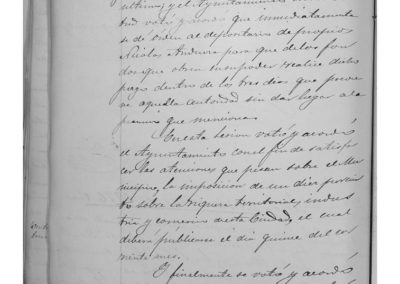 ultimo; y el Ayuntamiento en
votó y acordó que inmediatamente
se dé orden al depositario de propios
Nicolas Andueza para que de los fon
dos que obran en su poder realice dicho
pago dentro de los tres dias que previe
ne aquella autoridad sin dar lugar a la
que menciona.
En esta sesion votó y acordó
el Ayuntamiento con el fin de satisfa
cer las atenciones que pesan sobre el Mu
nicipio, la imposicion de un diez porcien
to sobre la riqueza territorial, indus
tria y comercio de esta Ciudad, el cual
deberá públicarse el dia quince del cor
riente mes.
Y finalmente se votó y acordó